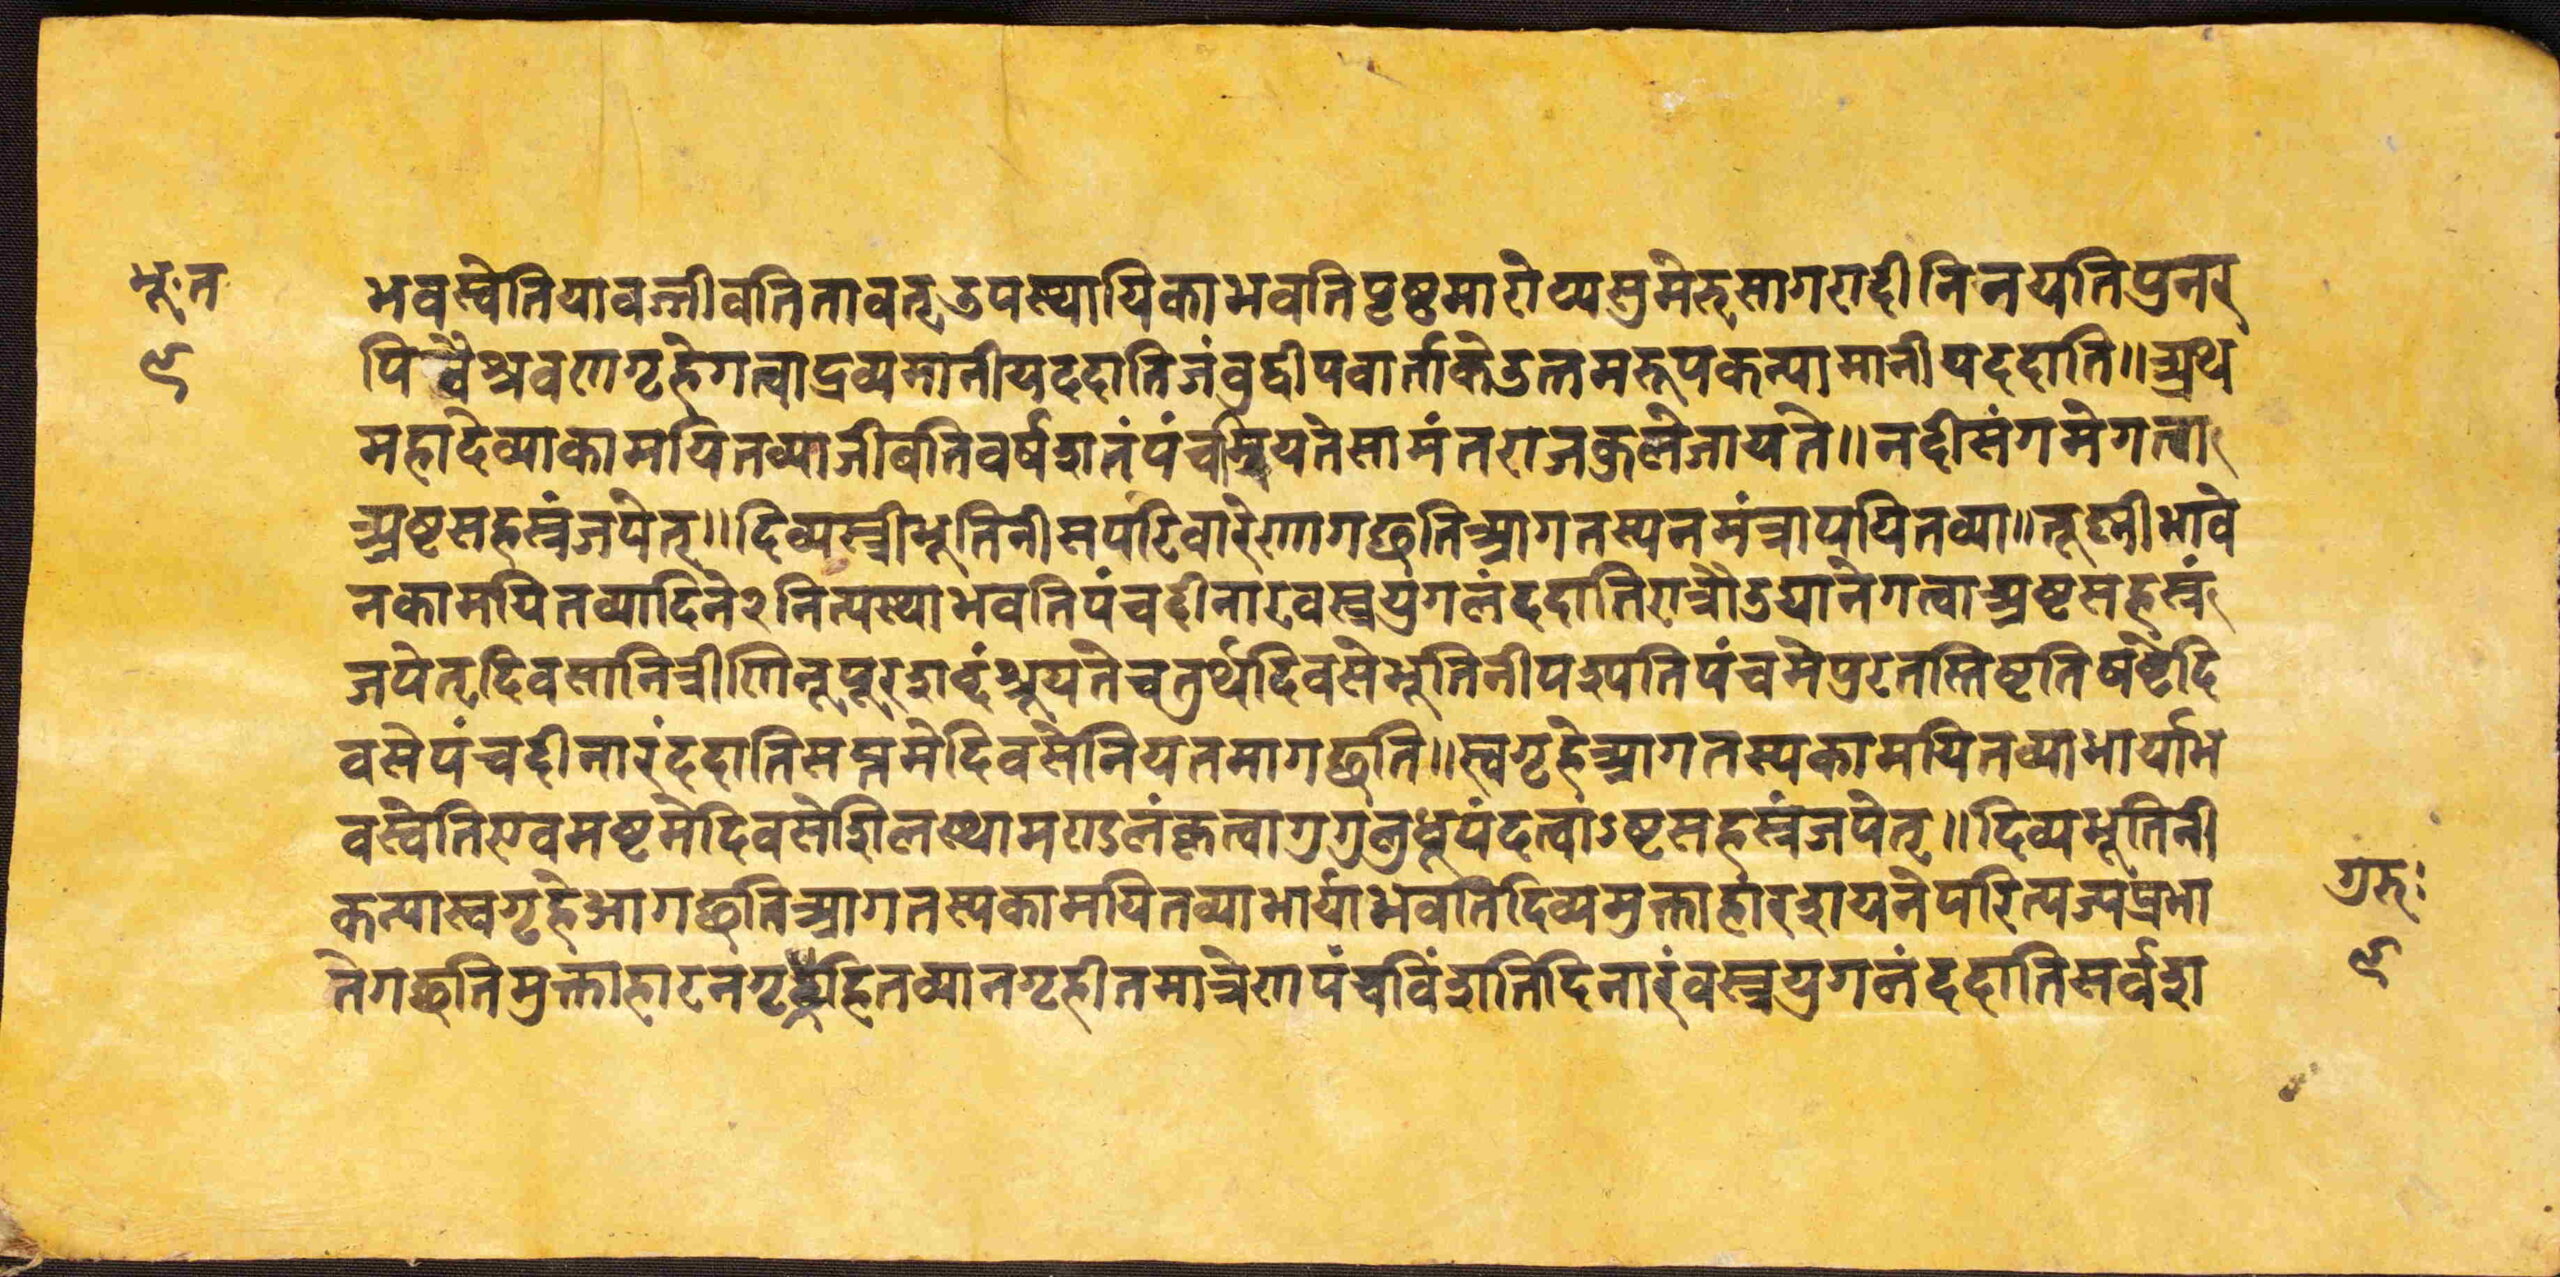 भूः त
९
भवस्वेति यावज्जीवति तावत् उपस्थायिका भवति पृष्ठमारोप्य सुमेरुसागरादीनि नयति पुनर
पि वैश्रवणगृहे गत्वा द्रव्यमानीय ददाति जंवुद्वीपवार्ताके उत्तमरूपकन्यामानीय ददाति ॥ अथ
महादेव्या कामयितव्या जीवति वर्षशतं पंच म्रियते सामंतराजकुले जायते ॥ नदीसंगमे गत्वा
अष्टसहस्रं जपेत् ॥ दिव्यस्त्री भूतिनी सपरिवारेणागछति आगतस्य न मंत्रापयितव्या ॥ तूष्णीभावे
न कामयितव्या दिने २ नित्यस्था भवति पंचदीनारवस्त्रयुगलं ददाति रात्रौ उद्याने गत्वा अष्टसहस्रं
जपेत् दिवसानि त्रीणि नूपूरशब्दं श्रूयते चतुर्थदिवसे भूतिनी पश्यति पंचमे पुरतस्तिष्टति षष्टे दि
वसे पंचदीनारं ददाति सप्तमे दिवसे नियतमागछति ॥ स्वगृहे आगतस्य कामयितव्या भार्या भ
वस्वेति एवमष्टमे दिवसे शिलस्थामण्डलं कृत्वा गुगुलुधूपं दत्वाऽष्टसहस्रं जपेत् ॥ दिव्यभूतिनी
कन्या स्वगृहे आगछति आगतस्य कामयितव्या भार्या भवति दिव्यमुक्ताहारशयने परित्यज्य प्रभा
ते गछति मुक्ताहार न गृहितव्या न गृहीतमात्रेण पंचविंशतिदिनारं वस्त्रयुगलं ददाति सर्वशा
गुरुः
९